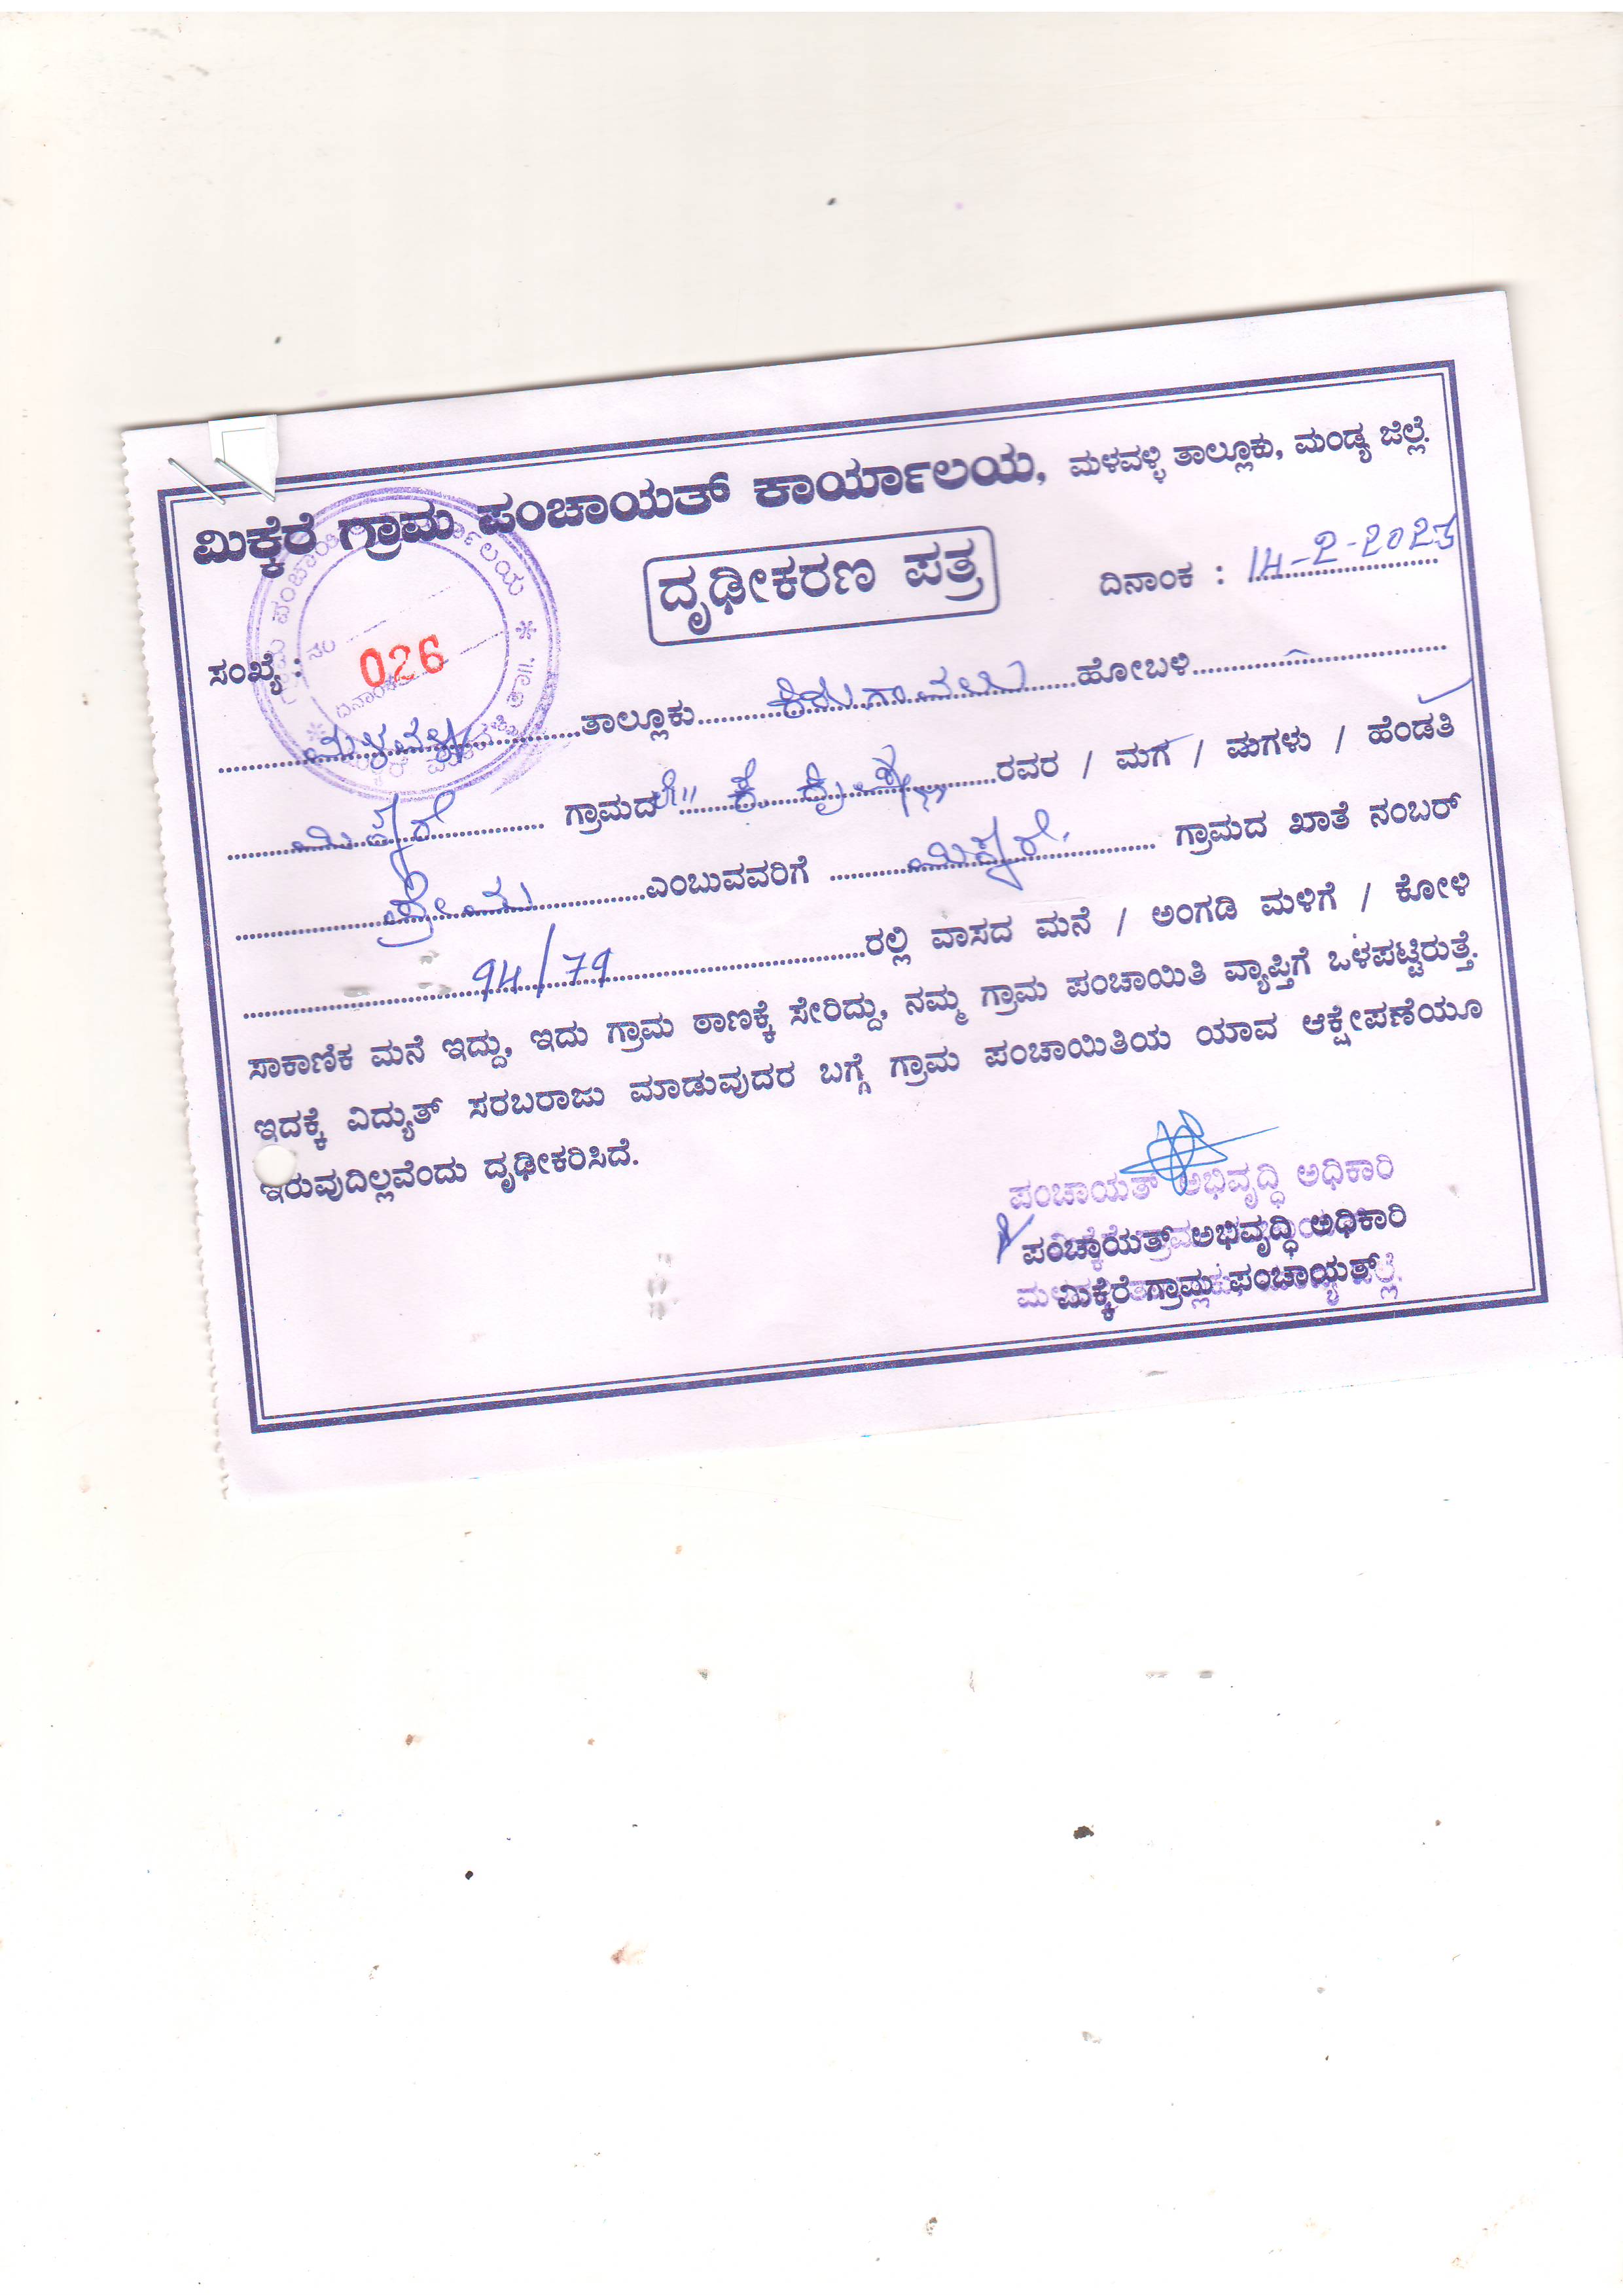 ಮಿಕ್ಕೆರೆ ಗ್ರಾಮ ಪಂಚಾಯತ್ ಕಾರ್ಯಾಲಯ, ಮಳವಳ್ಳಿ ತಾಲ್ಲೂಕು, ಮಂಡ್ಯ ಜಿಲ್ಲೆ.
ದೃಢೀಕರಣ ಪತ್ರ
ದಿನಾಂಕ : 14-2-2023
ಸಂಖ್ಯೆ : 026
ಮಳವಳ್ಳಿ ತಾಲ್ಲೂಕು ಕಿರುಗಾವಲು ಹೋಬಳಿ
ಮಿಕ್ಕೆರೆ ಗ್ರಾಮದ ಲೇ|| ಕೆ. ರವರ / ಮಗ / ಮಗಳು / ಹೆಂಡತಿ
ಪ್ರೇಮ ಎಂಬುವವರಿಗೆ ಮಿಕ್ಕೆರೆ ಗ್ರಾಮದ ಖಾತೆ ನಂಬರ್
94/79 ರಲ್ಲಿ ವಾಸದ ಮನೆ / ಅಂಗಡಿ ಮಳಿಗೆ / ಕೋಳಿ
ಸಾಕಾಣಿಕ ಮನೆ ಇದ್ದು, ಇದು ಗ್ರಾಮ ಠಾಣಕ್ಕೆ ಸೇರಿದ್ದು, ನಮ್ಮ ಗ್ರಾಮ ಪಂಚಾಯಿತಿ ವ್ಯಾಪ್ತಿಗೆ ಒಳಪಟ್ಟಿರುತ್ತೆ.
ಇದಕ್ಕೆ ವಿದ್ಯುತ್ ಸರಬರಾಜು ಮಾಡುವುದರ ಬಗ್ಗೆ ಗ್ರಾಮ ಪಂಚಾಯಿತಿಯ ಯಾವ ಆಕ್ಷೇಪಣೆಯೂ
ಇರುವುದಿಲ್ಲವೆಂದು ದೃಢೀಕರಿಸಿದೆ.
ಪಂಚಾಯತ್ ಅಭಿವೃದ್ಧಿ ಅಧಿಕಾರಿ
ಪಂಚಾಯತ್ ಅಭಿವೃದ್ಧಿ ಅಧಿಕಾರಿ
ಮಿಕ್ಕೆರೆ ಗ್ರಾಮ ಪಂಚಾಯತ್